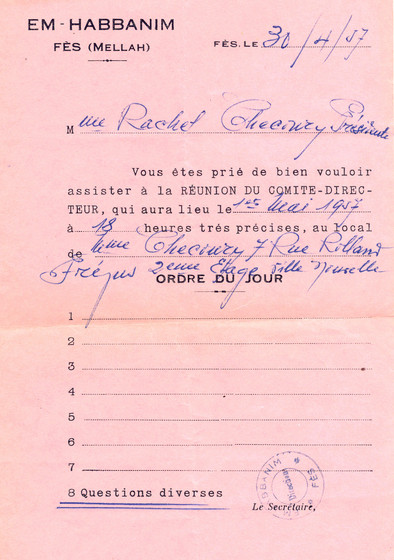 EM-HABBANIM
FÈS (MELLAH)
FÈS, LE 30/4/57
Mme Rachel Checoury Présidente
Vous êtes prié de bien vouloir
assister à la RÉUNION DU COMITE-DIREC-
TEUR, qui aura lieu le 1er Mai 1957
à 18 heures très précises, au local
de Mme Checoury 7 Rue Rolland
Fréjus 2eme Etage Ville Nouvelle
ORDRE DU JOUR
1
2
3
4
5
6
7
8 Questions diverses
Le Secrétaire,
FÈS